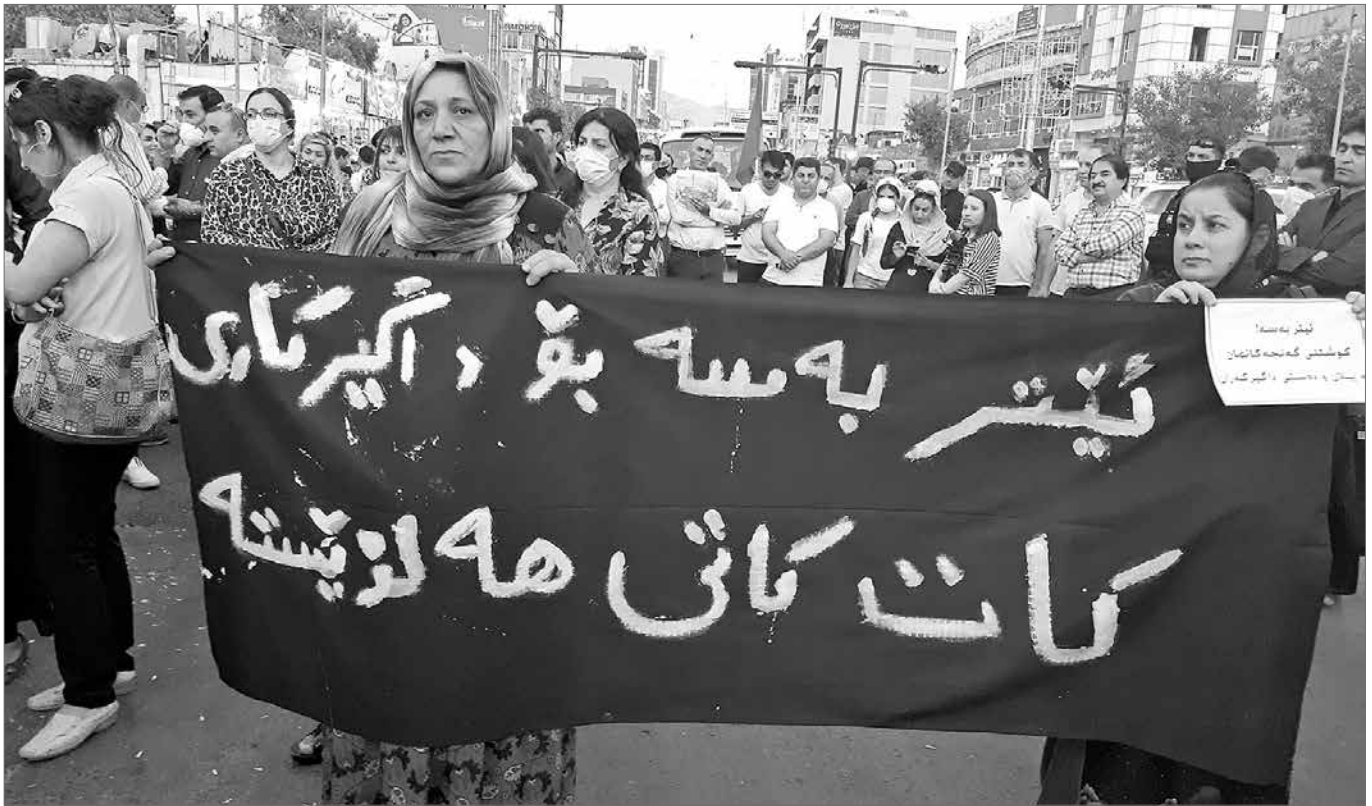 ئێتر بەسە بۆ داگیرکاری
کات کاتی هەلوێستە
ئیتر بەسە!
کوشتنی گەنجەکانمان
دەستی داگیرکەران